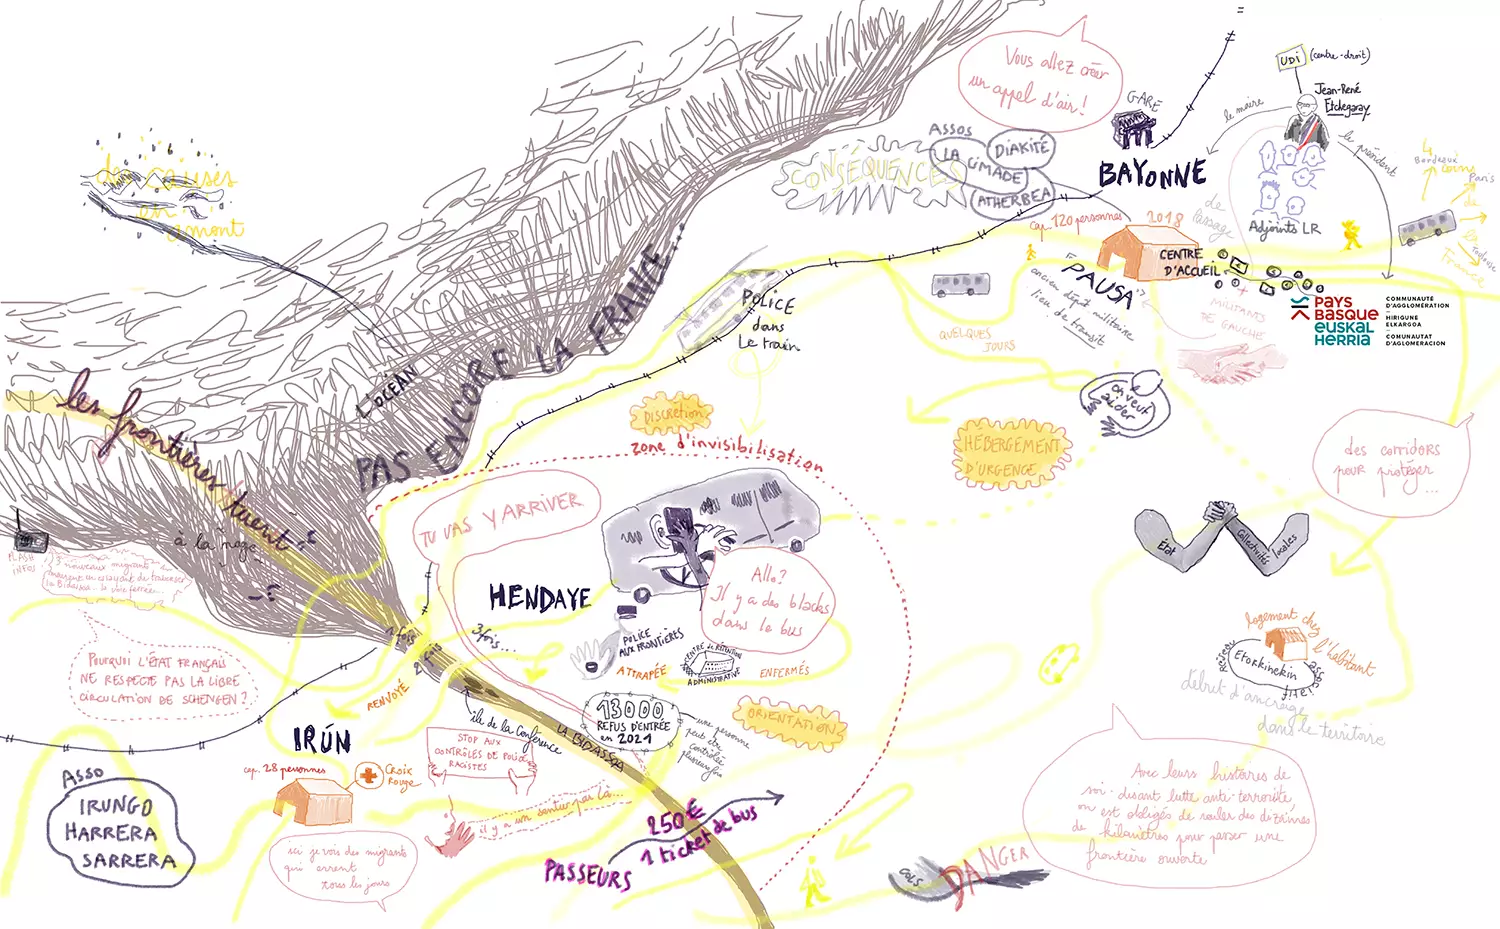 Vous allez créer
un appel d'air!
GARE
BAYONNE
UDI
(centre-droit)
Jean-René
Etchegaray
le maire
le président
Adjoints LR
Bordeaux
Paris
Toulouse
4 coins
de
la
France
des causes
en
amont
CONSÉQUENCES
ASSOS
LA CIMADE
DIAKITÉ
ATHERBEA
cap. 120 personnes
2018
de
Passage
CENTRE
D'ACCUEIL
"PAUSA"
ancien dépôt militaire
lieu de transit
+
MILITANTS
DE GAUCHE
PAYS
BASQUE
EUSKAL
HERRIA
COMMUNAUTÉ
D'AGGLOMÉRATION
HIRIGUNE
ELKARGOA
COMUNAUTAT
D'AGLOMERACION
QUELQUES
JOURS
POLICE
dans
Le train
L'OCÉAN
PAS ENCORE LA FRANCE...
les frontières tuent
à la nage
DISCRÉTION
zone d'invisibilisation
on veut
aider
HÉBERGEMENT
D'URGENCE
des corridors
pour protéger
...
État
Collectivités
locales
TU VAS Y ARRIVER
FLASH
INFOS
3 nouveaux migrants
meurent en essayant de traverser
la Bidassoa... la voie ferrée...
HENDAYE
Allo?
Il y a des blacks
dans le bus
POLICE
AUX FRONTIÈRES
ATTRAPÉE
CENTRE DE RÉTENTION
ADMINISTRATIVE
ENFERMÉS
1 fois
2 fois
3 fois...
RENVOYÉ
POURQUOI L'ÉTAT FRANÇAIS
NE RESPECTE PAS LA LIBRE
CIRCULATION DE SCHENGEN?
logement chez
l'habitant
Etorkinekin
début d'ancrage
dans le territoire
13000
REFUS D'ENTRÉE
en 2021
une personne
peut être
contrôlée
plusieurs fois
ORIENTATION
île de la Conférence
LA BIDASSOA
IRÚN
cap. 28 personnes
CROIX
Rouge
STOP AUX
CONTRÔLES DE POLICE
RACISTES
il y a un sentier par là...
ASSO
IRUNGO
HARRERA
SARRERA
ici je vois des migrants
qui errent
tous les jours
250€
1 ticket de bus
PASSEURS
COLS
DANGER
Avec leurs histoires de
soi-disant lutte anti-terroriste,
on est obligés de rouler des dizaines
de kilomètres pour passer une
frontière ouverte